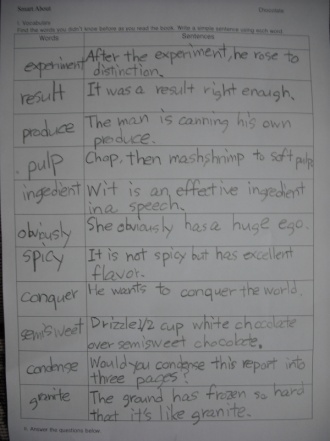 Smart About
Chocolate
1. Vocabulary
Find the words you didn't know before as you read the book. Write a simple sentence using each word.
Words Sentences
experiment After the experiment, he rose to
distinction.
result It was a result right enough.
produce The man is canning his own
produce.
pulp Chop, then mashshrimp to soft pulp
ingredient Wit is an effective ingredient
in a speech.
obviously She obviously has a huge ego.
spicy It is not spicy but has excellent
flavor.
conquer He wants to conquer the world.
semisweet Drizzle 1/2 cup white chocolate
over semisweet chocolate.
condense Would you condense this report into
three pages?
granite The ground has frozen so hard
that it's like granite.
Answer the questions below.